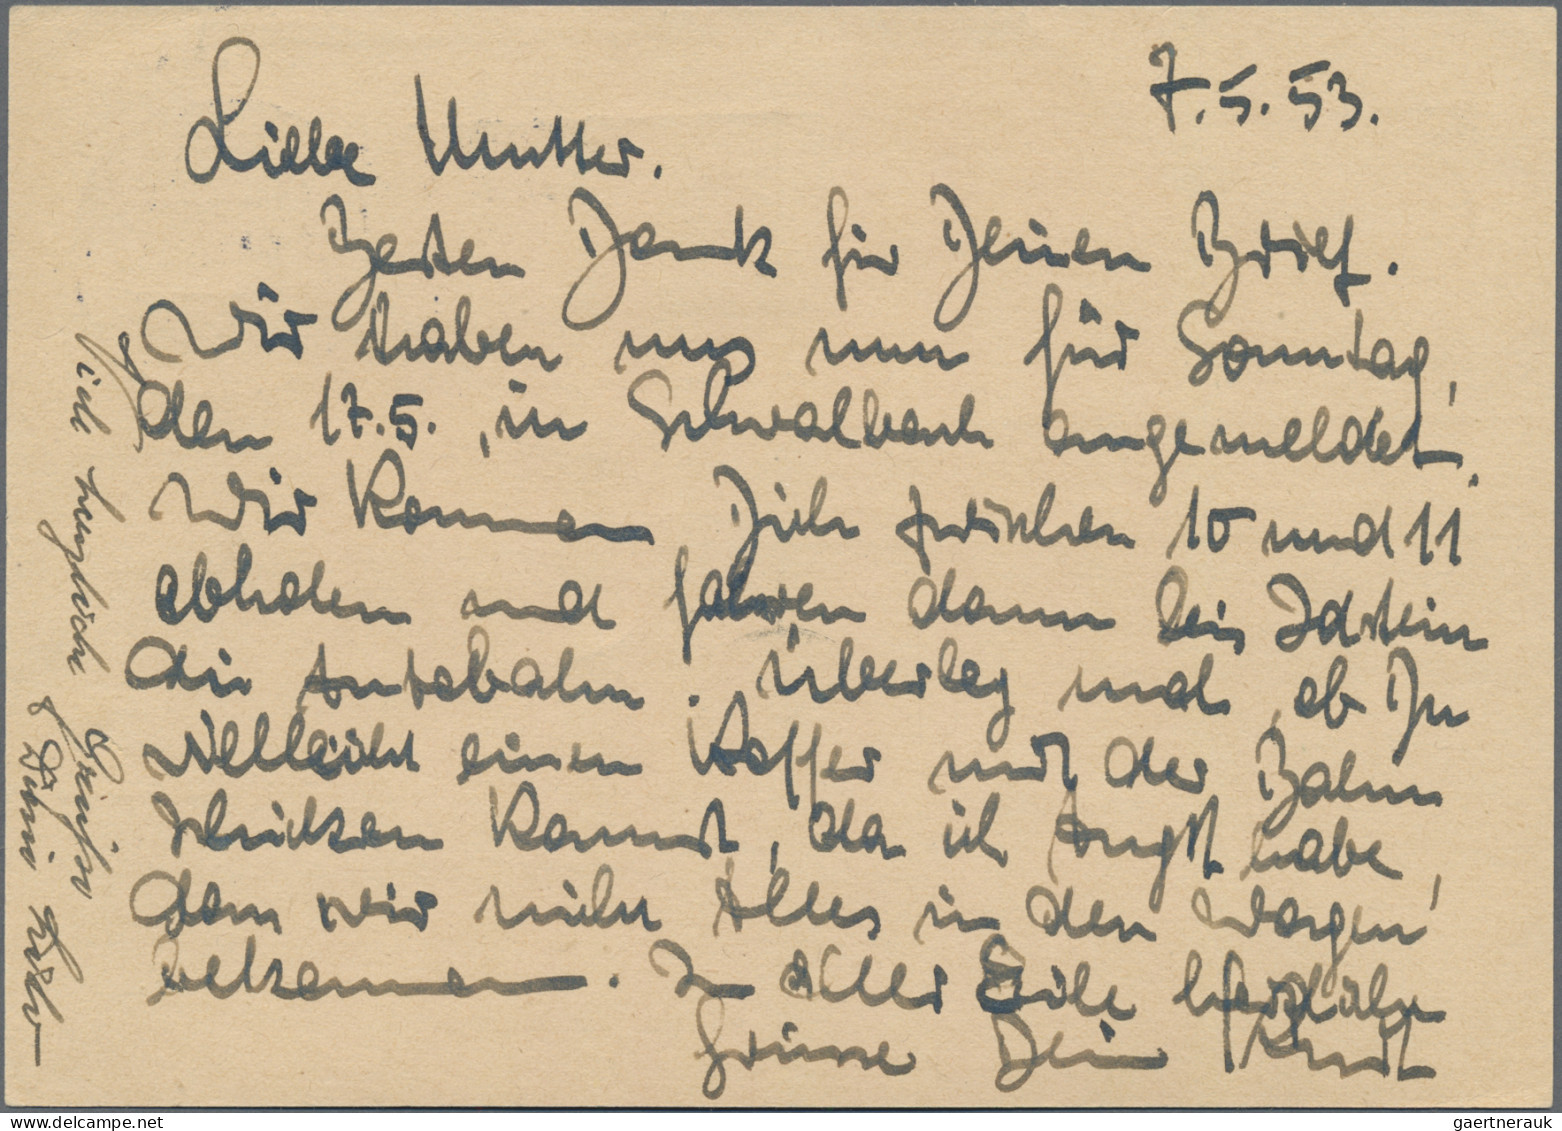 7.5.53.
Liebe Mutter.
Besten Dank für Deinen Brief.
Wir haben uns nun für Sonntag,
den 17.5., in Schwalbach angemeldet.
Wir kommen Dich zwischen 10 und 11
abholen und fahren dann bis Idstein
die Autobahn. Überleg mal, ob Du
vielleicht einen Koffer mit der Bahn
schicken kannst, da ich Angst habe,
dass wir nicht Alles in den Wagen
bekommen. In aller Eile herzliche
Grüsse Dein Knut
herzlich
Deine
gaertnerauk